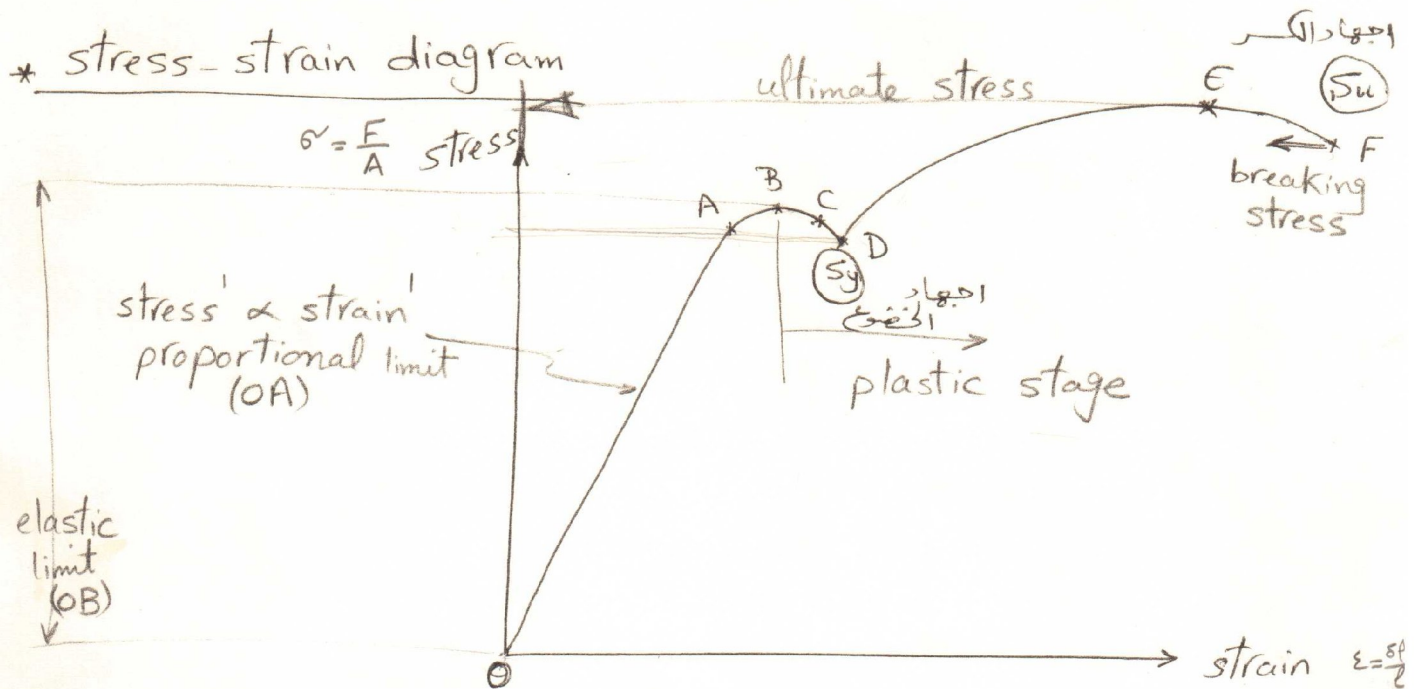 * stress-strain diagram
اجهاد الكسر
Su
ultimate stress
E
F
breaking
stress
σ = F/A stress
A
B
C
D
Sy
اجهاد
الخضوع
plastic stage
stress' ∝ strain'
proportional limit
(OA)
elastic
limit
(OB)
O
strain ε = δℓ/ℓ